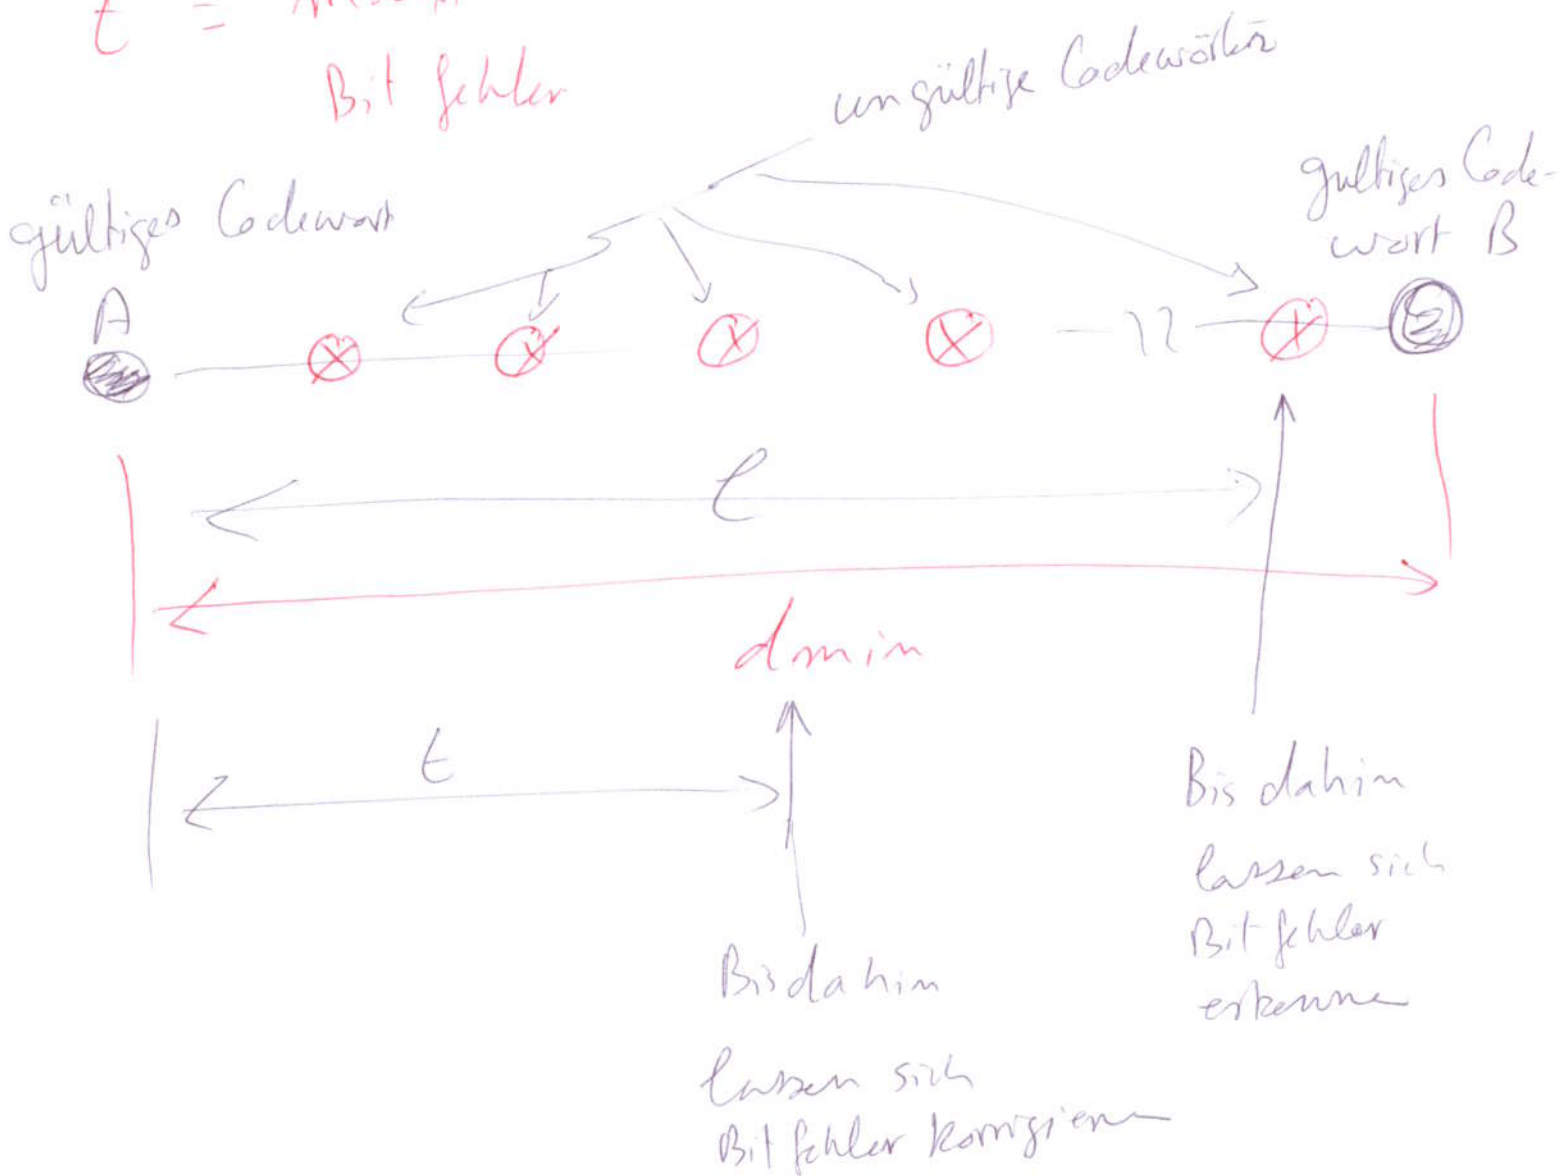 t =
Bit fehler
ungültige Codewörter
gültiges Codewort
A
gultiges Code-
wort B
l
dmin
t
Bis dahin
lassen sich
Bit fehler
erkenne
Bis dahin
lassen sich
Bit fehler korrigieren